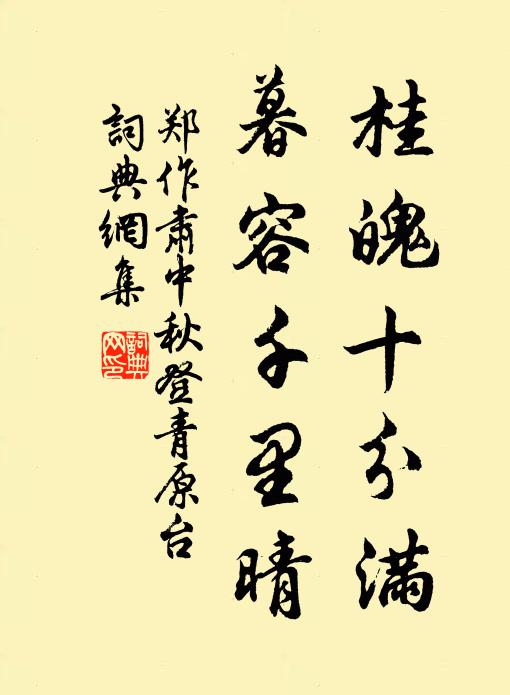 桂魄十分满
暮容千里晴
郑作肃中秋登青原台
詞典網集
詞典
网印